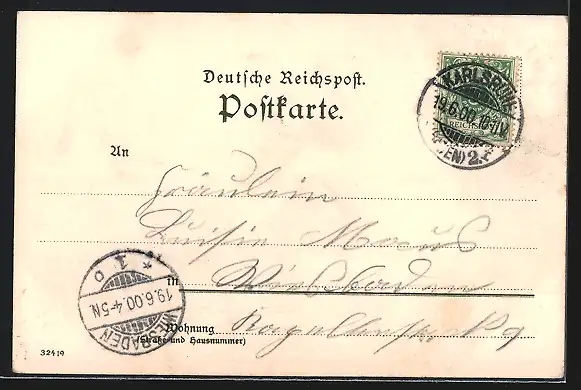 Deutsche Reichspost.
Postkarte.
KARLSRUHE
19.6.00.10-11V
(BADEN) 2.
REICHSPOST
An
Fräulein
Luisie Maus
in Wiesbaden
Wohnung
(Straße und Hausnummer)
9
* 1 o
19.6.00.4-5N
WIESBADEN
32419